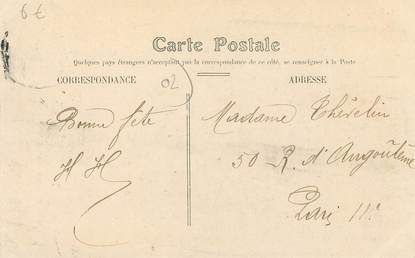 6 €
Carte Postale
Quelques pays étrangers n'acceptant pas la correspondance de ce côté, se renseigner à la Poste
CORRESPONDANCE
ADRESSE
02
Bonne fête
H H
Madame Thévelin
50 R. d'Angoulême
Paris 11e